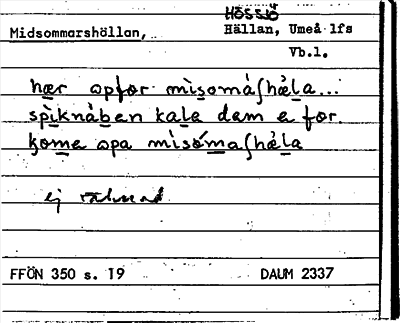 HÖSSJÖ
Midsommarshällan, Hällan, Umeå lfs
Vb.l.
hær opfor mìsomáʃhæ̀la...
spìknàben kala dem e for
kome opa mìsómaʃhæ̀la
ej
FFÖN 350 s. 19 DAUM 2337